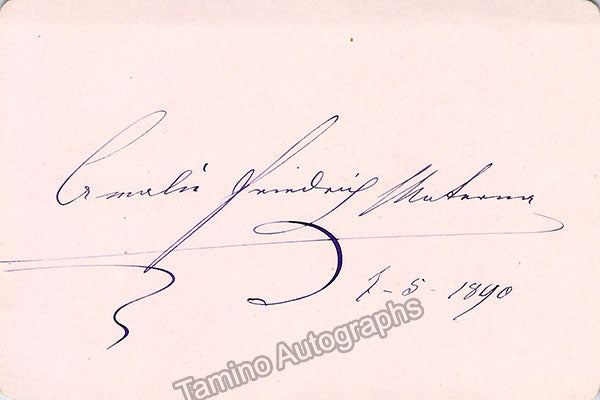 Amalie Friedrich Materna
7-5-1890
Tamino Autographs